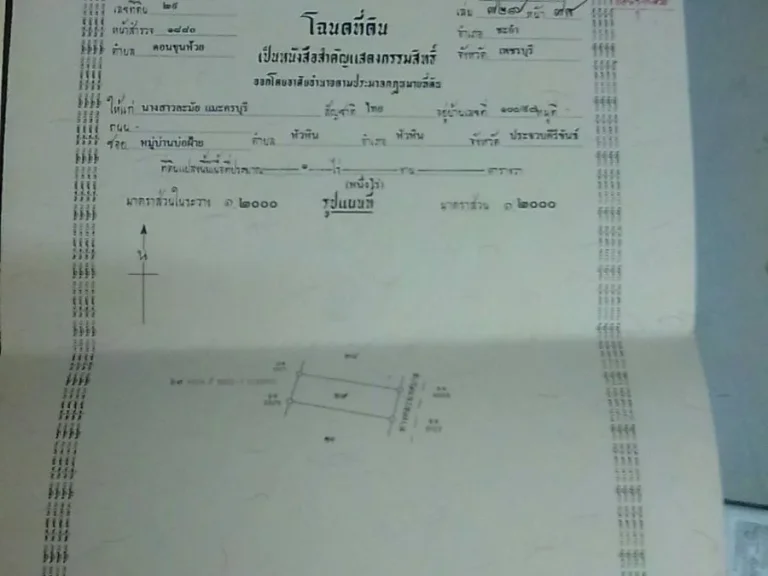 เลขที่ดิน ๒๙
เล่ม ๗๒๘ หน้า
โฉนดที่ดิน
หน้าสำรวจ ๑๘๔๐
อำเภอ ชะอำ
ตำบล ดอนขุนห้วย
เป็นหนังสือสำคัญแสดงกรรมสิทธิ์
จังหวัด เพชรบุรี
ออกโดยอาศัยอำนาจตามประมวลกฎหมายที่ดิน
ให้แก่ นางสาวละมัย แมะครบุรี สัญชาติ ไทย อยู่บ้านเลขที่ หมู่ที่
ถนน
ซอย หมู่บ้านบ่อฝ้าย ตำบล หัวหิน อำเภอ หัวหิน จังหวัด ประจวบคีรีขันธ์
ที่ดินแปลงนี้มีเนื้อที่ประมาณ ๑ ไร่ งาน ตารางวา
(หนึ่งไร่)
มาตราส่วนในระวาง ๑ ๒๐๐๐ รูปแผนที่ มาตราส่วน ๑ ๒๐๐๐
น
๒๙
ทางหลวงเทศบาล
๓๐